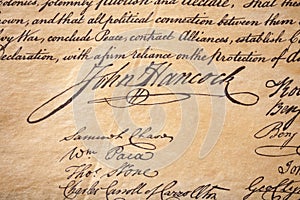 olonies, solemnly Publish and Declare, That these
own, and that all political connection between them a
vy War, conclude Peace, contract Alliances, establish C
Declaration, with a firm reliance on the protection of
John Hancock
Samuel Chase
Wm Paca
Thos Stone
Charles Carroll of Carrollton
Ben